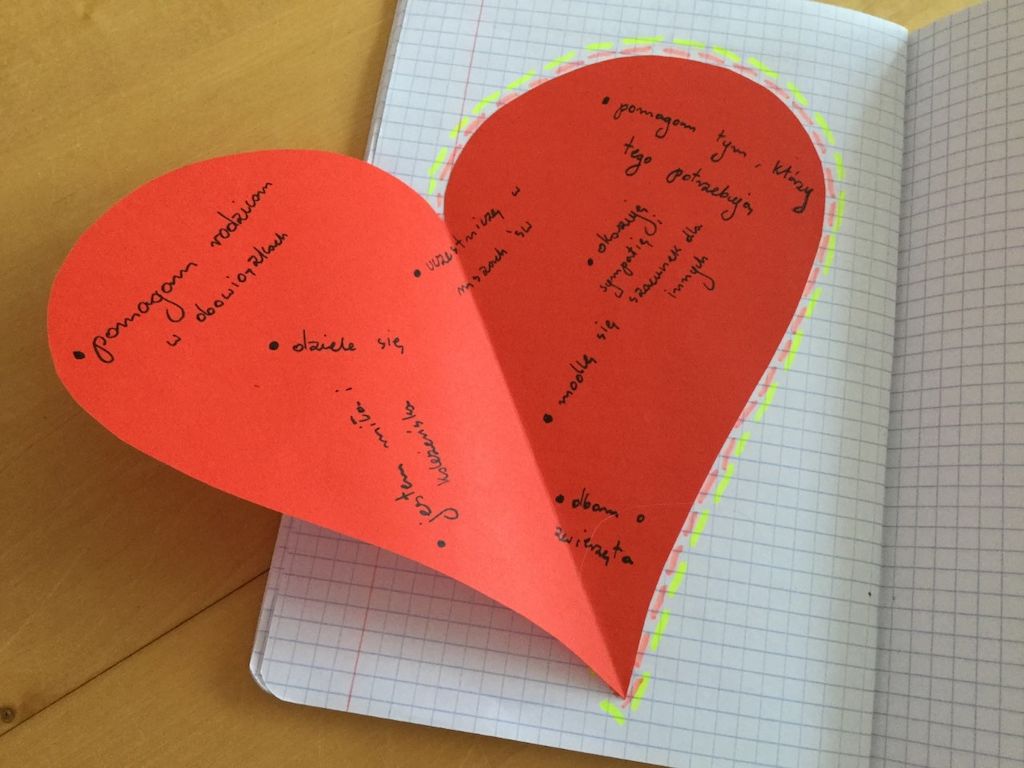 • pomagam rodzicom
w obowiązkach
• dziele się
• jestem miła i
koleżeńska
• uczestniczę w
mszach św
• pomagam tym, którzy
tego potrzebują
• okazuję
sympatię i
szacunek dla
innych
• modlę się
• dbam o
zwierzęta